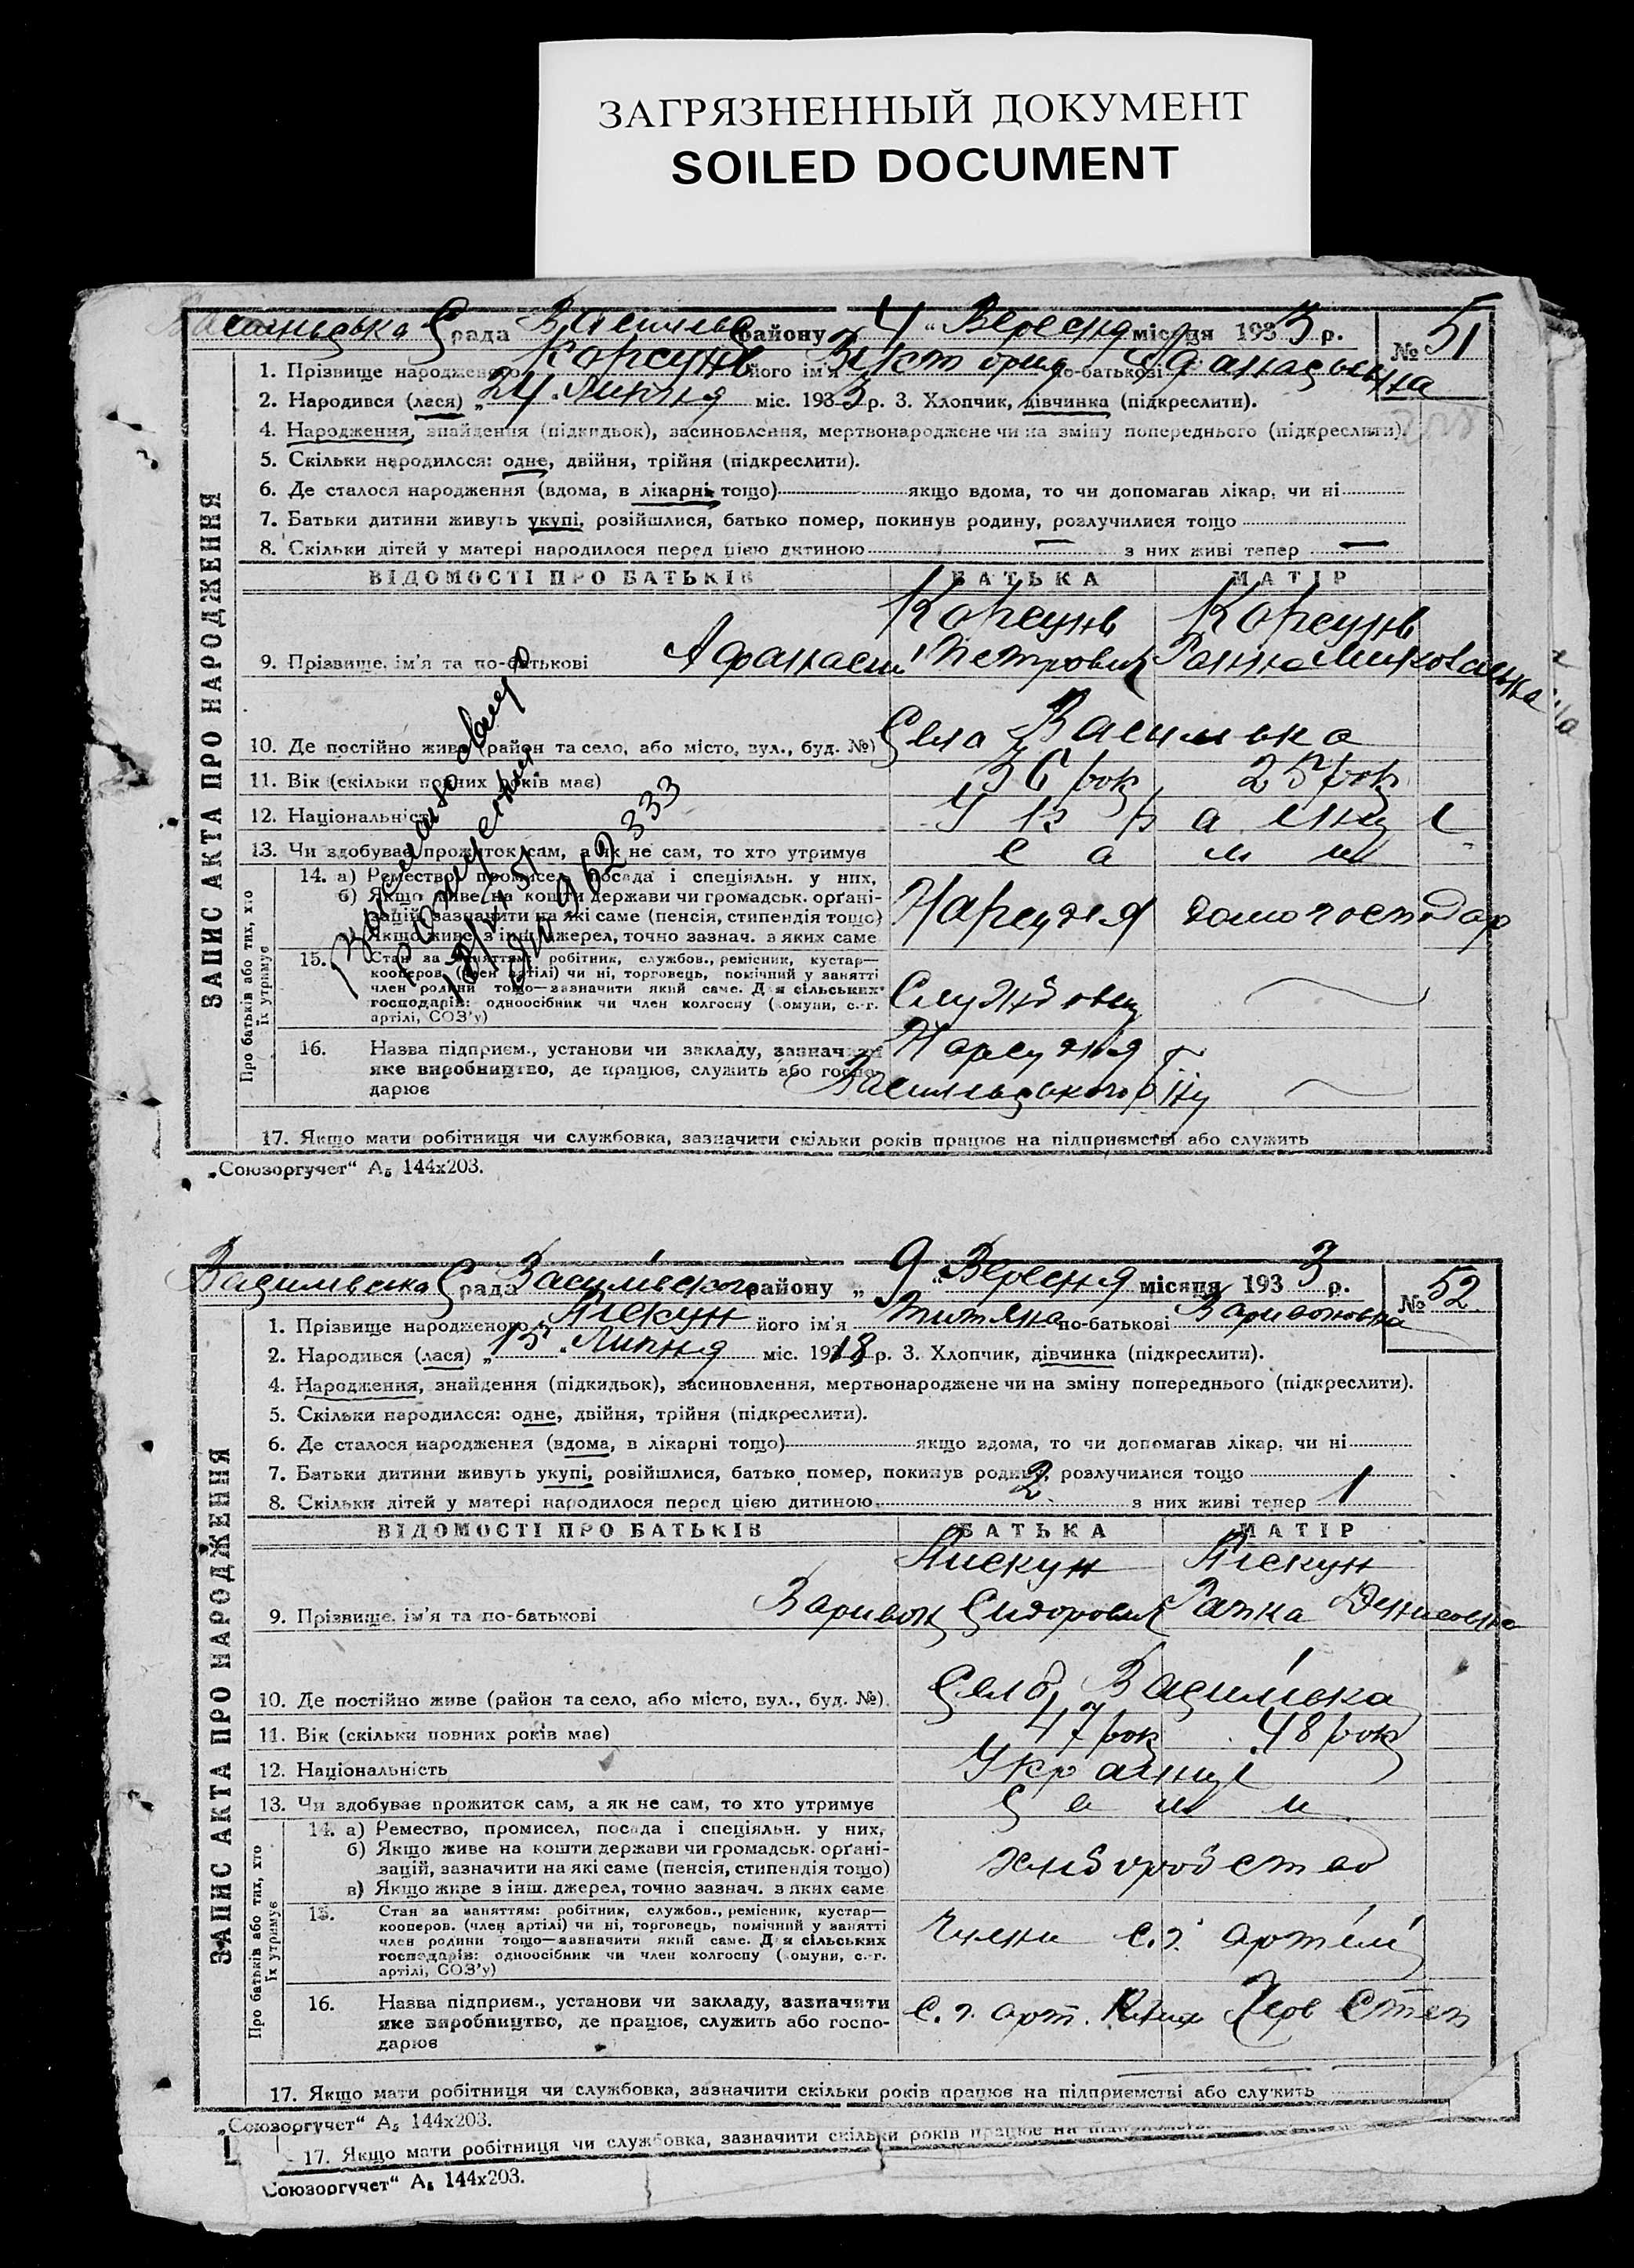 ЗАГРЯЗНЕННЫЙ ДОКУМЕНТ
SOILED DOCUMENT
рада району „4“ Вересня місяця 1933 р. № 51
ЗАПИС АКТА ПРО НАРОДЖЕННЯ
1. Прізвище народженого Корсунь його ім'я по-батькові
2. Народився (лася) „24“ Липня міс. 1933 р. 3. Хлопчик, дівчинка (підкреслити).
4. Народження, знайдення (підкидьок), засиновлення, мертвонароджене чи на зміну попереднього (підкреслити).
5. Скільки народилося: одне, двійня, трійня (підкреслити).
6. Де сталося народження (вдома, в лікарні тощо) якщо вдома, то чи допомагав лікар, чи ні
7. Батьки дитини живуть укупі, розійшлися, батько помер, покинув родину, розлучилися тощо
8. Скільки дітей у матері народилося перед цією дитиною — з них живі тепер —
ВІДОМОСТІ ПРО БАТЬКІВ БАТЬКА МАТІР
Корсунь Корсунь
9. Прізвище, ім'я та по-батькові Афанасий Петрович Ганна
10. Де постійно живе (район та село, або місто, вул., буд. №) Село
11. Вік (скільки повних років має) 36 рок 25 рок
12. Національність Украинці
13. Чи здобуває прожиток сам, а як не сам, то хто утримує сами
Про батьків або тих, хто їх утримує
14. а) Ремество, промисел, посада і спеціяльн. у них,
б) Якщо живе на кошти держави чи громадськ. орґані-
зацій, зазначити на які саме (пенсія, стипендія тощо) Нарсудья домогосподар
Якщо живе з інш. джерел, точно зазнач. з яких саме
15. Стан за заняттям: робітник, службов., ремісник, кустар—
кооперов. (член артілі) чи ні, торговець, помічний у занятті
член родини тощо—зазначити який саме. Для сільських
господарів: одноосібник чи член колгоспу (комуни, с.-г.
артілі, СОЗ'у) Службовец
16. Назва підприєм., установи чи закладу, зазначити Нарсудья
яке виробництво, де працює, служить або госпо-
дарює
17. Якщо мати робітниця чи службовка, зазначити скільки років працює на підприємстві або служить
„Союзоргучет“ А₅ 144х203.
рада району „9“ Вересня місяця 1933 р. № 52
ЗАПИС АКТА ПРО НАРОДЖЕННЯ
1. Прізвище народженого Пискун його ім'я по-батькові
2. Народився (лася) „15“ Липня міс. 1918 р. 3. Хлопчик, дівчинка (підкреслити).
4. Народження, знайдення (підкидьок), засиновлення, мертвонароджене чи на зміну попереднього (підкреслити).
5. Скільки народилося: одне, двійня, трійня (підкреслити).
6. Де сталося народження (вдома, в лікарні тощо) якщо вдома, то чи допомагав лікар, чи ні
7. Батьки дитини живуть укупі, розійшлися, батько помер, покинув родину, розлучилися тощо
8. Скільки дітей у матері народилося перед цією дитиною 2 з них живі тепер 1
ВІДОМОСТІ ПРО БАТЬКІВ БАТЬКА МАТІР
Пискун Пискун
9. Прізвище, ім'я та по-батькові Сидорович Ганна Денисовна
10. Де постійно живе (район та село, або місто, вул., буд. №) Село Василівка
11. Вік (скільки повних років має) 47 рок 48 рок
12. Національність Украинці
13. Чи здобуває прожиток сам, а як не сам, то хто утримує сами
Про батьків або тих, хто їх утримує
14. а) Ремество, промисел, посада і спеціяльн. у них,
б) Якщо живе на кошти держави чи громадськ. орґані-
зацій, зазначити на які саме (пенсія, стипендія тощо) хліборобство
в) Якщо живе з інш. джерел, точно зазнач. з яких саме
15. Стан за заняттям: робітник, службов., ремісник, кустар—
кооперов. (член артілі) чи ні, торговець, помічний у занятті
член родини тощо—зазначити який саме. Для сільських
господарів: одноосібник чи член колгоспу (комуни, с.-г.
артілі, СОЗ'у) Члени с.г. артілі
16. Назва підприєм., установи чи закладу, зазначити с. г. арт. Черв Степ
яке виробництво, де працює, служить або госпо-
дарює
17. Якщо мати робітниця чи службовка, зазначити скільки років працює на підприємстві або служить
„Союзоргучет“ А₅ 144х203.
17. Якщо мати робітниця чи службовка, зазначити скільки років працює на
Союзоргучет“ А₅ 144х203.